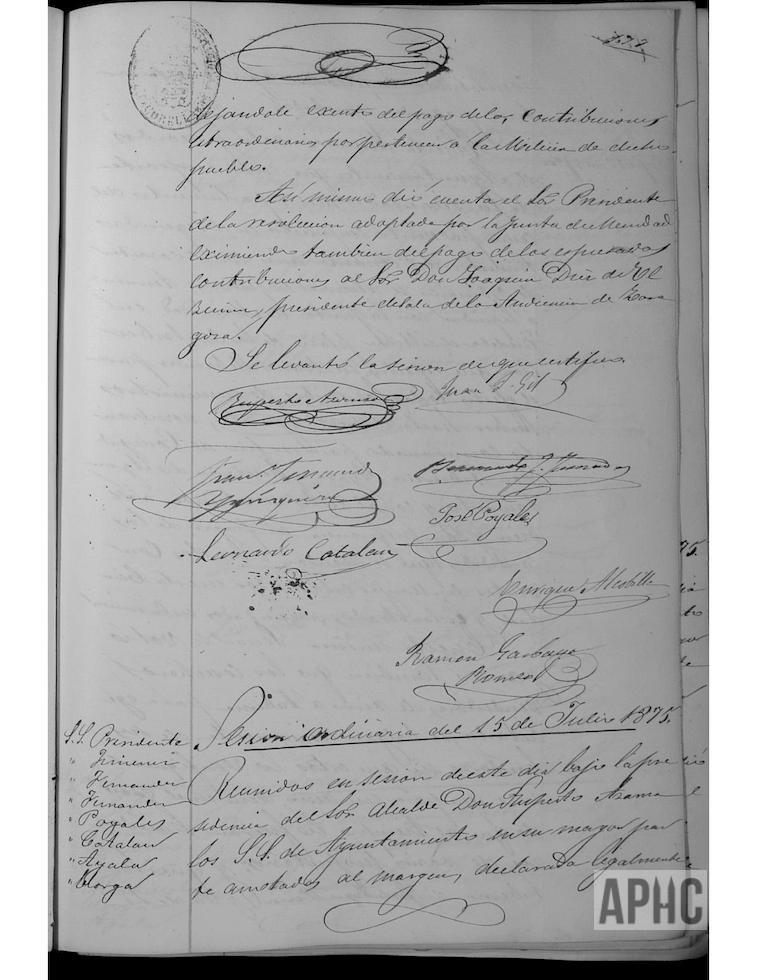 dejandole exento del pago de las Contribuciones
extraordinarias por pertenecer a la Milicia de dicho
pueblo.
Asi mismo dió cuenta el Sor Presidente
de la resolucion adoptada por la Junta de
eximiendo tambien del pago de las espresadas
contribuciones al Sor Don Joaquin Diez de
presidente de sala de la Audiencia de Zara
goza.
Se levantó la sesion de que certifico
Ruperto
Juan J. Gil
Fernando
José Poyales
Leonardo Catalan
Enrique
Ramon
Sesion ordinaria del 15 de Julio 1875.
S.S. Presidente
" Jimenez
" Fernandez
" Fernandez
" Poyales
" Catalan
" Ayala
" Vorga
Reunidos en sesion de este dia bajo la pre
sidencia del Sor Alcalde Don Ruperto
los S.S. de Ayuntamiento en su mayor par
te anotados al margen, declarada legalmente
APHC